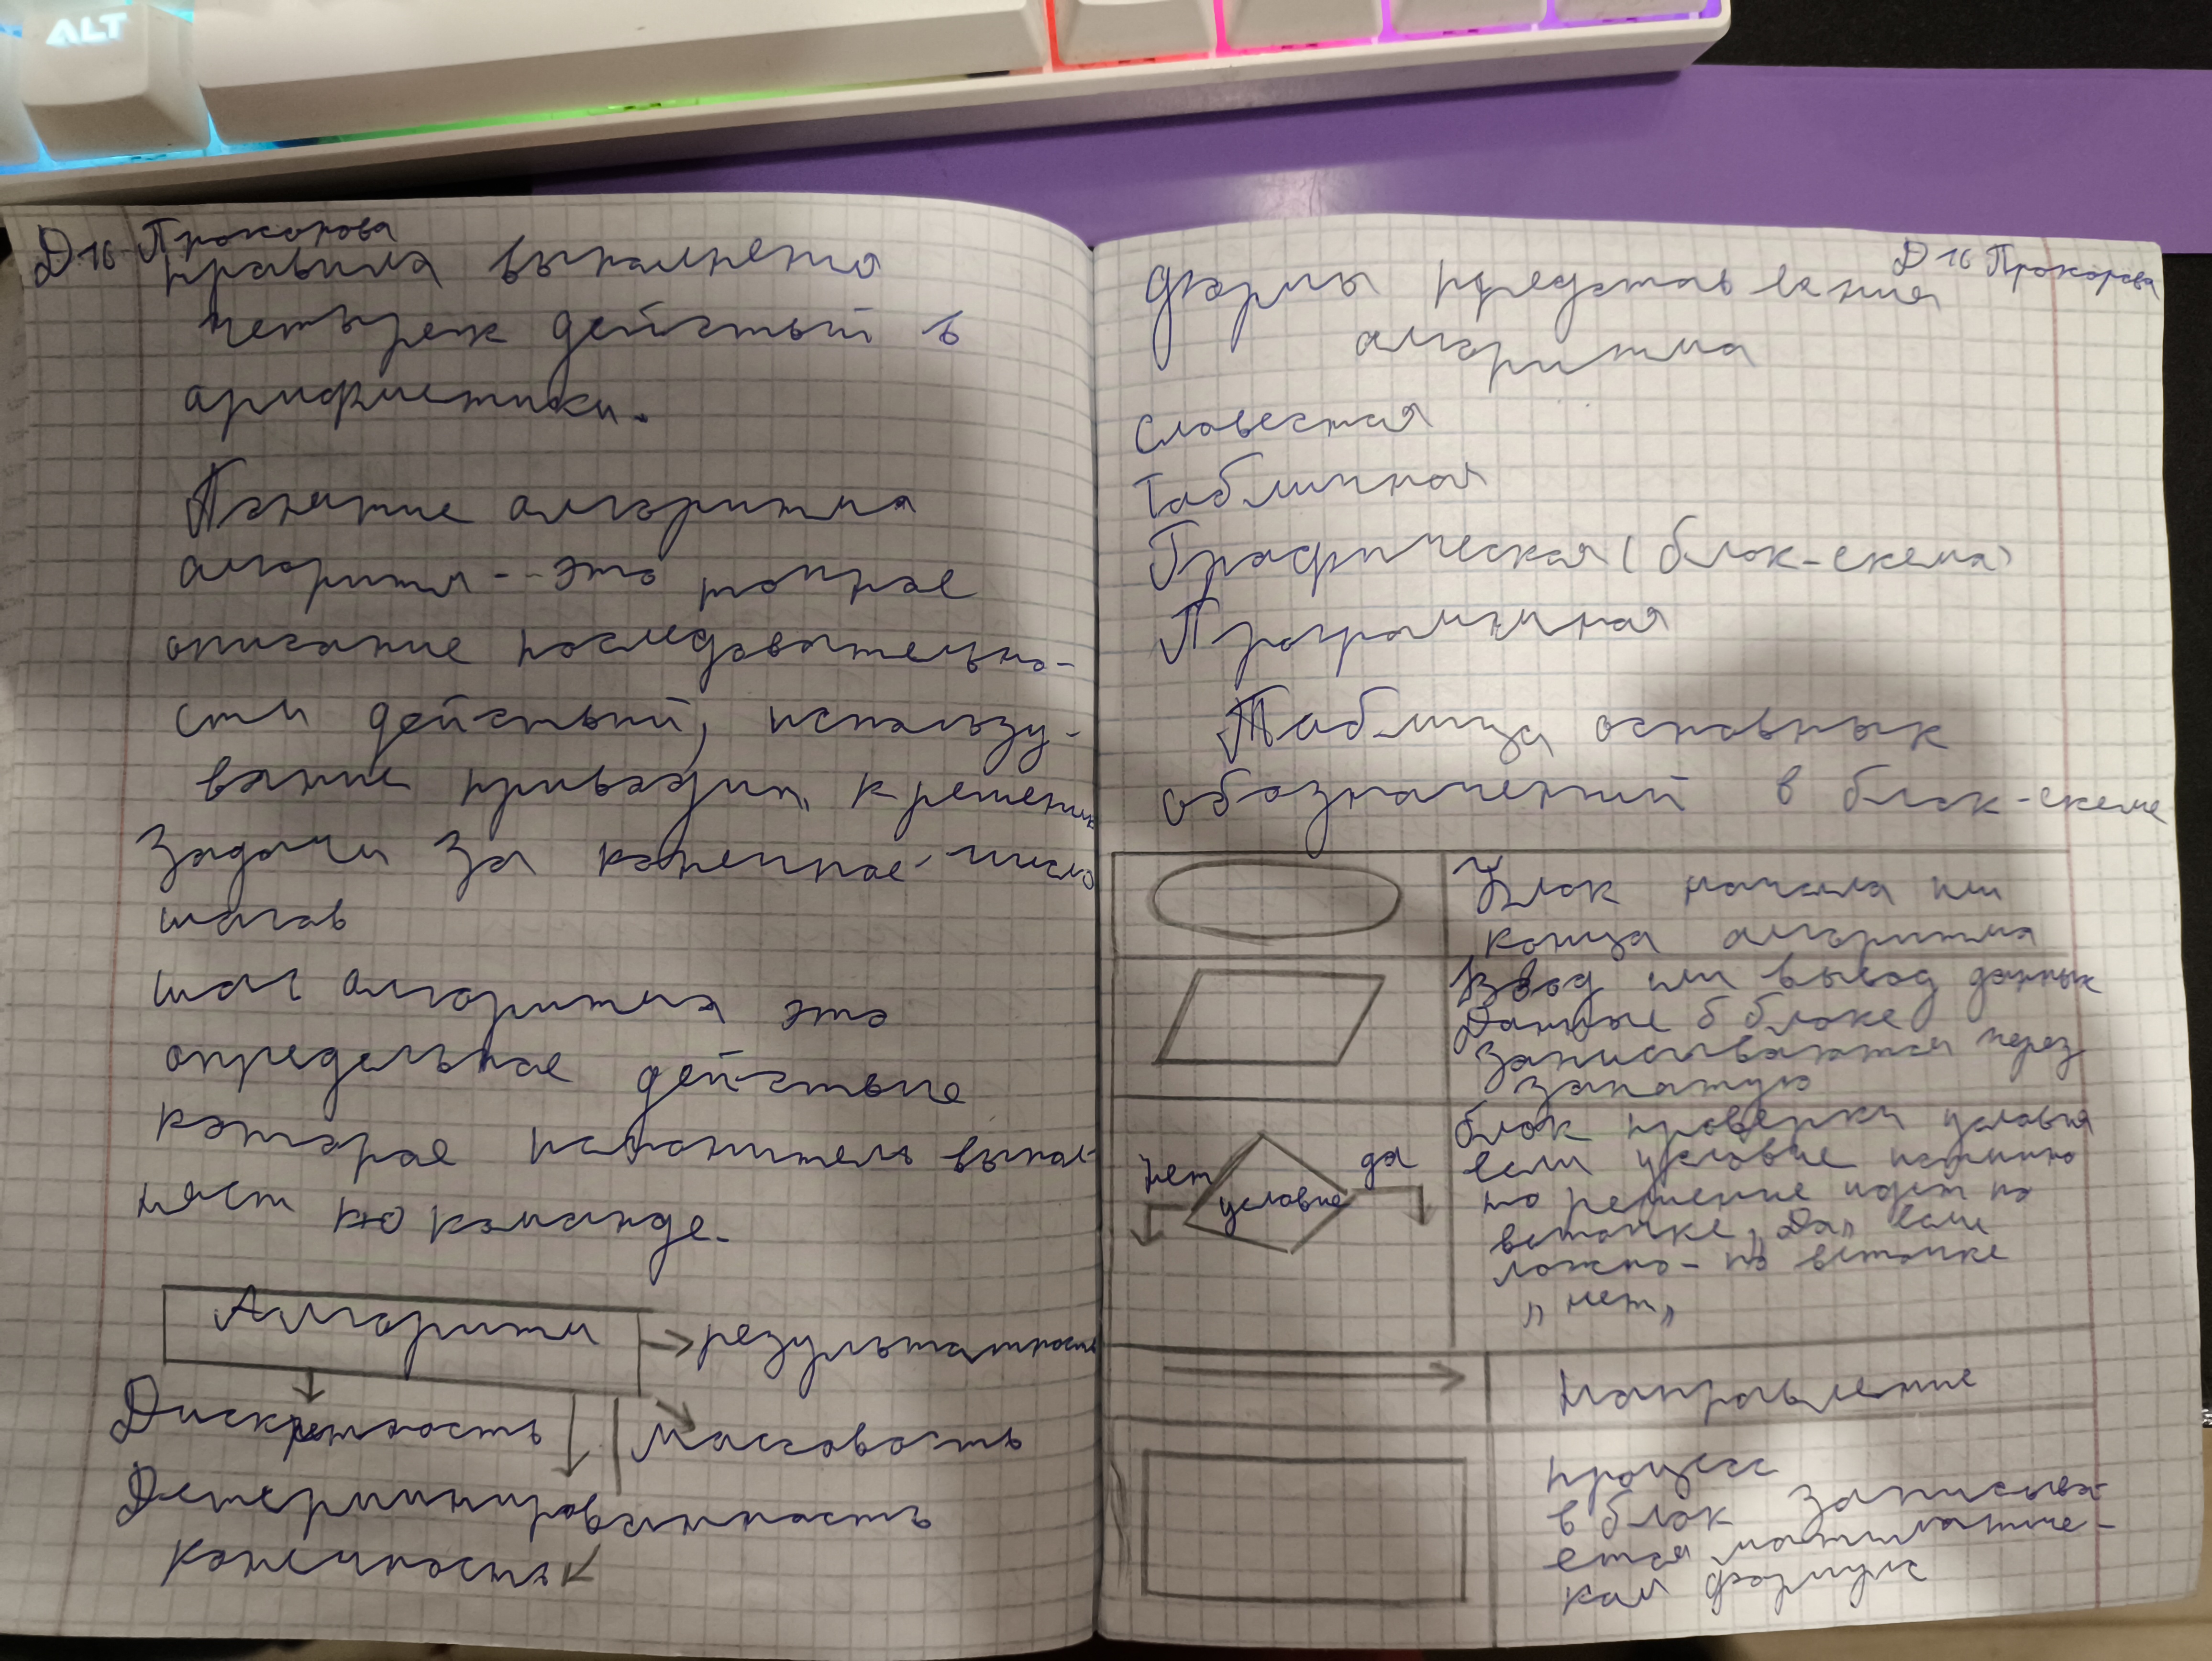 ALT
Д16 Прохорова
правила выполнена
четырех действий в
арифметики.
Понятие алгоритма
алгоритм -- это точное
описание последовательно-
сти действий, использу-
вание приводит к решению
задачи за конечное число
шагов
шаг алгоритма это
определьное действие
которое исполнитель выпол-
няет по команде.
Алгоритм
результатность
Дискретность
Массовость
Детерминированность
конечность
Д16 Прохорова
формы представления
алгоритма
Словесная
Табличная
Графическая (блок-схема)
Программная
Таблица основных
обозначений в блок-схеме
Блок начала или
конца алгоритма
Ввод или вывод данных
Данные в блоке
записываются через
запятую
нет
условие
да
блок проверки условия
если условие истинно
то решение идет по
веточке „Да„ если
ложно - по веточке
„нет„
Направление
процесс
в блок записыва-
ется математиче-
кая формула